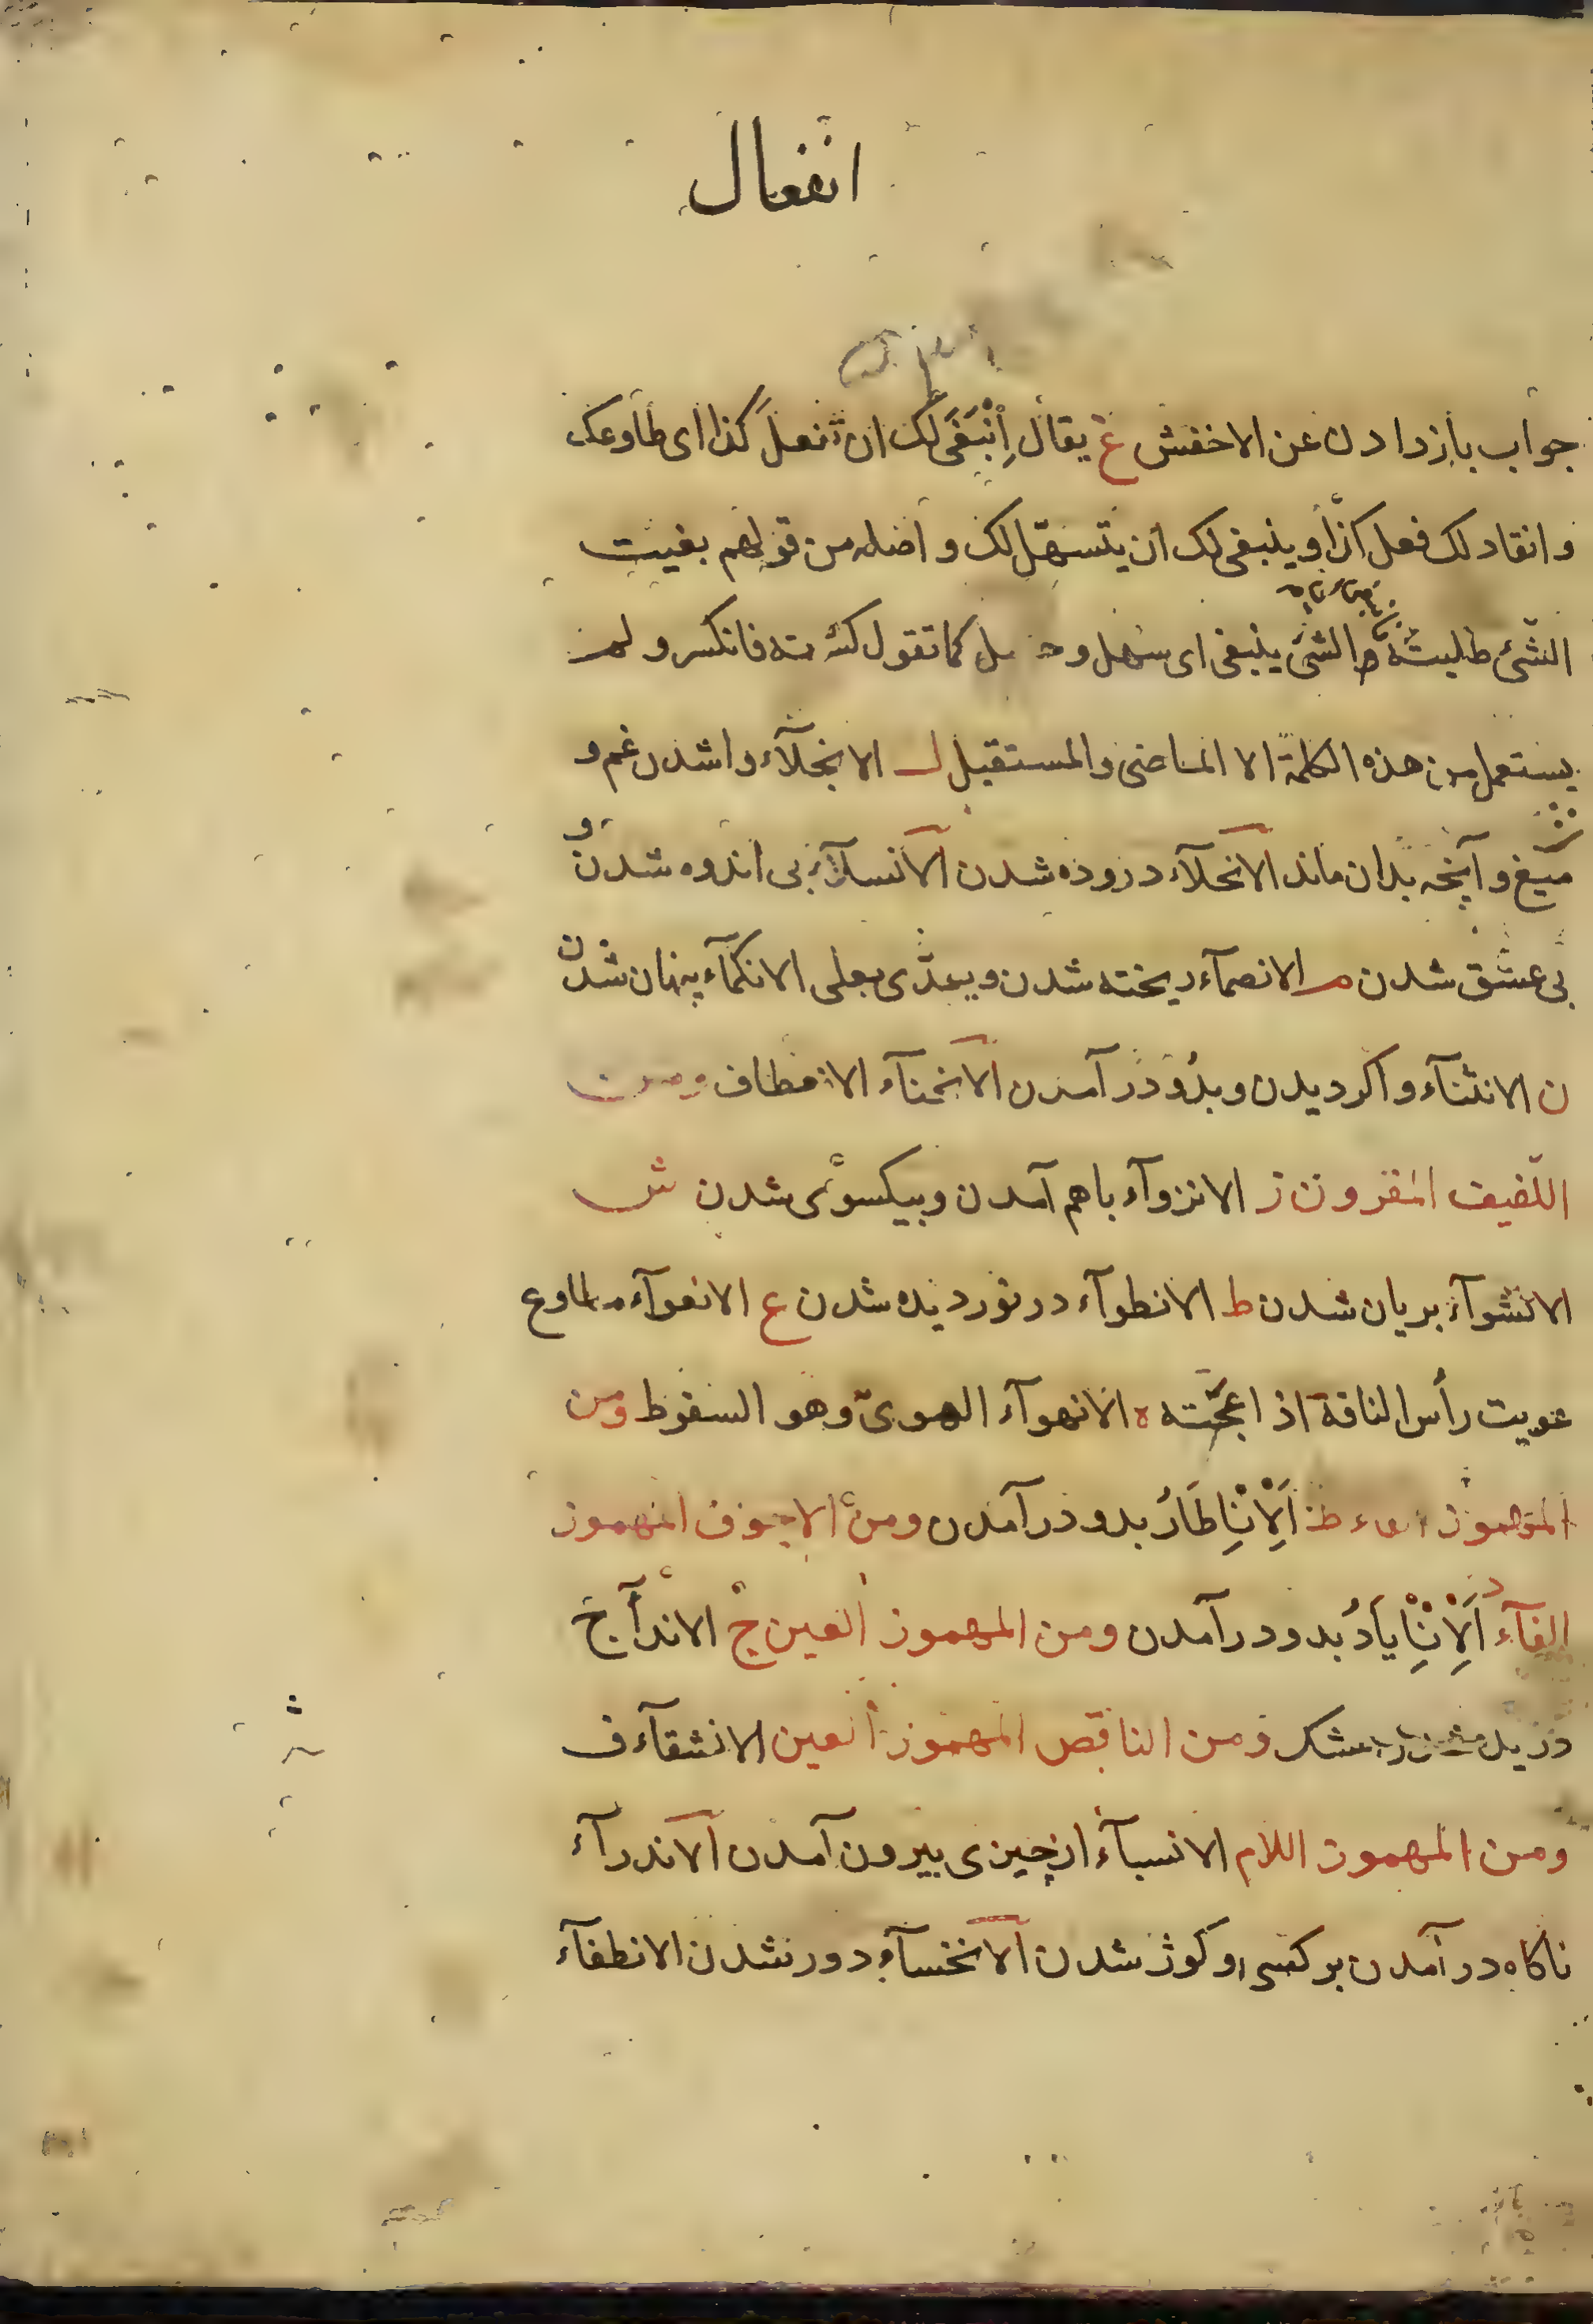 انفعال
جواب بازدادن عن الاخفش غ يقال اِنْبَغَى لک ان تفعلَ کذا ای طاوعک
وانقاد لک فعل کذا وینبغی لک ان یتسهّل لک واصله من قولهم بغیت
الشّئ طلبته والشئ ینبغی ای سهل و کما تقول کسرته فانکسر ولم
یستعمل من هذه الکلمة الا الماضی والمستقبل ل الانجلآء واشدن غم و
میغ وآنچه بدان ماند الانحلآء دروده شدن الانسلآء بی اندوه شدن و
بی عشق شدن م الانصمآء ریخته شدن ویعدّی بعلی الانکمآء پنهان شدن
ن الانثنآء واکردیدن وبدو درآمدن الانحنآء الانعطاف ومن
اللّفیف المقرون ز الانزوآء باهم آمدن وبیکسوی شدن ش
الانشوآء بریان شدن ط الانطوآء درنوردیده شدن ع الانعوآء مطاوع
عویت رأس الناقة اذا عجّته ه الانهوآء الهویّ وهو السقوط ومن
المهموز الفاء ط اَلْاِنْئِطَارُ بدو درآمدن ومن الاجوف المهموز
الفآء د اَلْاِنْئِیَادُ بدو درآمدن ومن المهموز العین ج الاندآج
دریده مشک ومن الناقص المهموز العین الانشقآء ف
ومن المهموز اللام الانسبآء ازچیزی بیرون آمدن الاندرآء
ناکاه درآمدن برکسی وکوژ شدن الانخسآء دور شدن الانطفآء